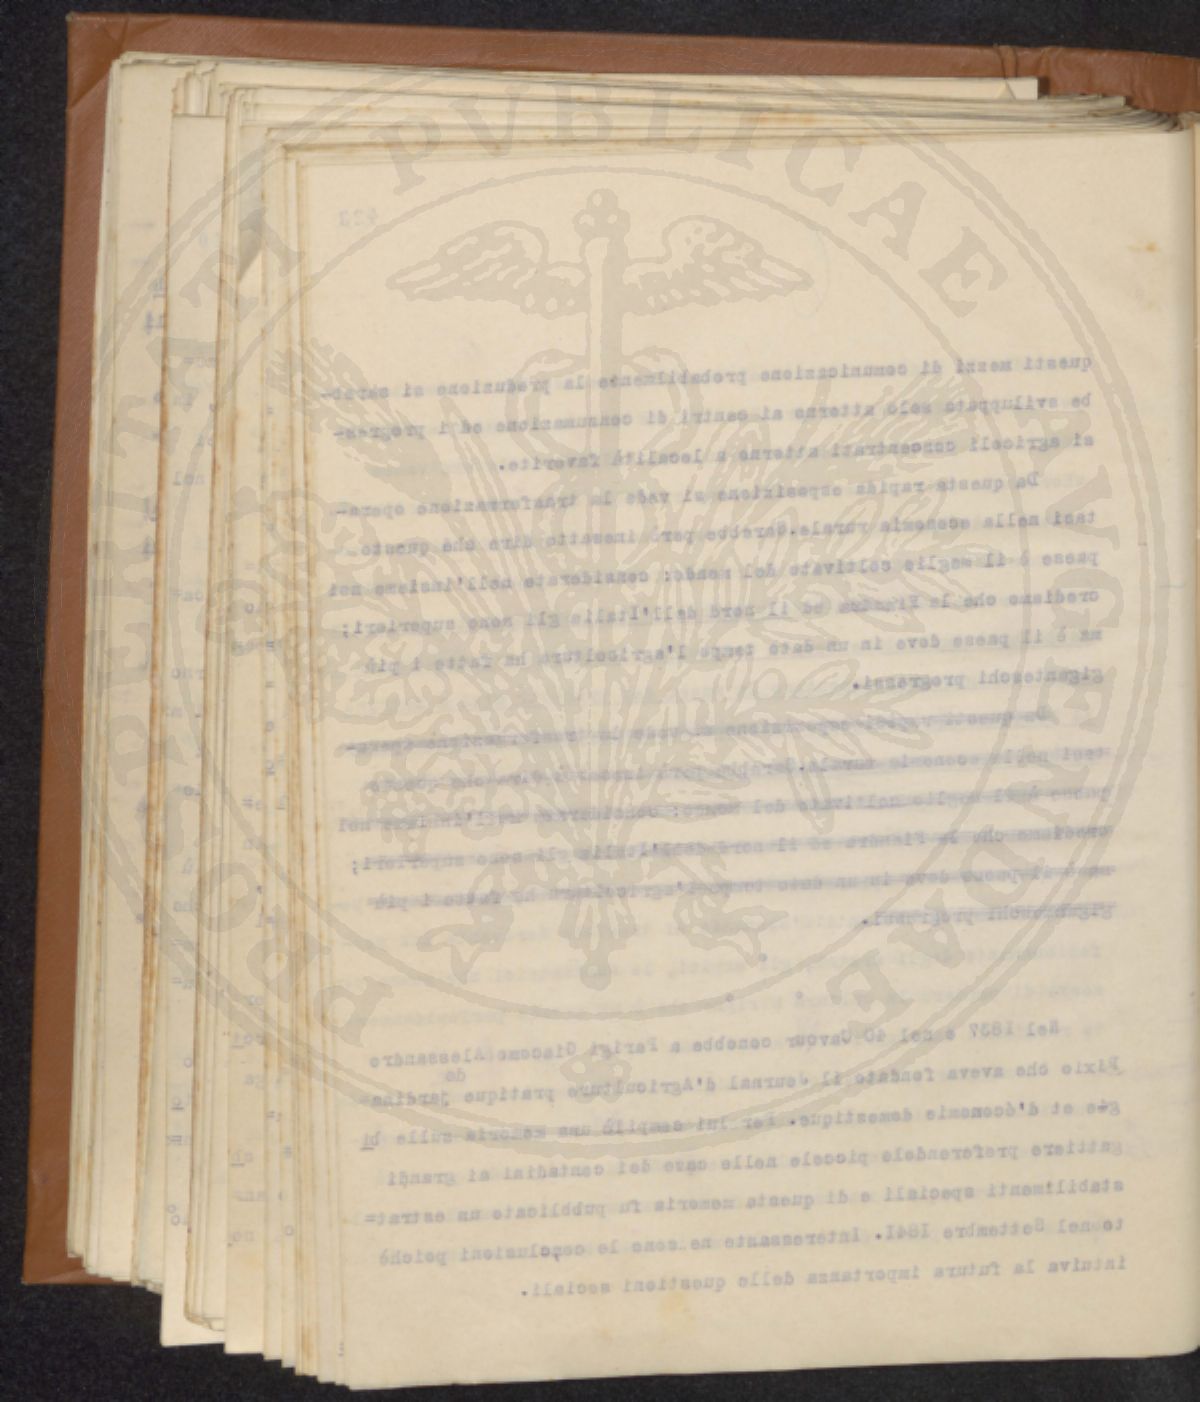 423
questi mezzi di comunicazione probabilmente la produzione si sareb-
be sviluppata solo attorno ai centri di consumazione ed i progres-
si agricoli concentrati attorno a località favorite.
Da questa rapida esposizione si vede la trasformazione opera-
tasi nella economia rurale. Sarebbe però inesatto dire che questo
paese è il meglio coltivato del mondo; considerate nell'insieme noi
crediamo che la Fiandra ed il nord dell'Italia gli sono superieri;
ma è il paese dove in un dato tempo l'agricoltura ha fatto i più
giganteschi progressi.
Da questa rapida esposizione si vede la trasformazione opera-
tasi nella economia rurale. Sarebbe però inesatto dire che questo
paese è il meglio coltivato del mondo; considerate nell'insieme noi
crediamo che la Fiandra ed il nord dell'Italia gli sono superieri;
ma è il paese dove in un dato tempo l'agricoltura ha fatto i più
giganteschi progressi.
Nel 1837 e nel 40 Cavour conobbe a Parigi Giacomo Alessandro
Bixio che aveva fondato il Journal d'Agriculture pratique de jardina-
ge et d'économie domestique. Per lui compilò una memoria sulle bi
gattiere preferendole piccole nelle case dei contadini ai grandi
stabilimenti speciali e di questa memoria fu pubblicato un estrat=
to nel Settembre 1841. Interessante ne sono le conclusioni poichè
intuiva la futura importanza delle questioni sociali.
PROSPERITATI PVBLICAE AVGENDAE